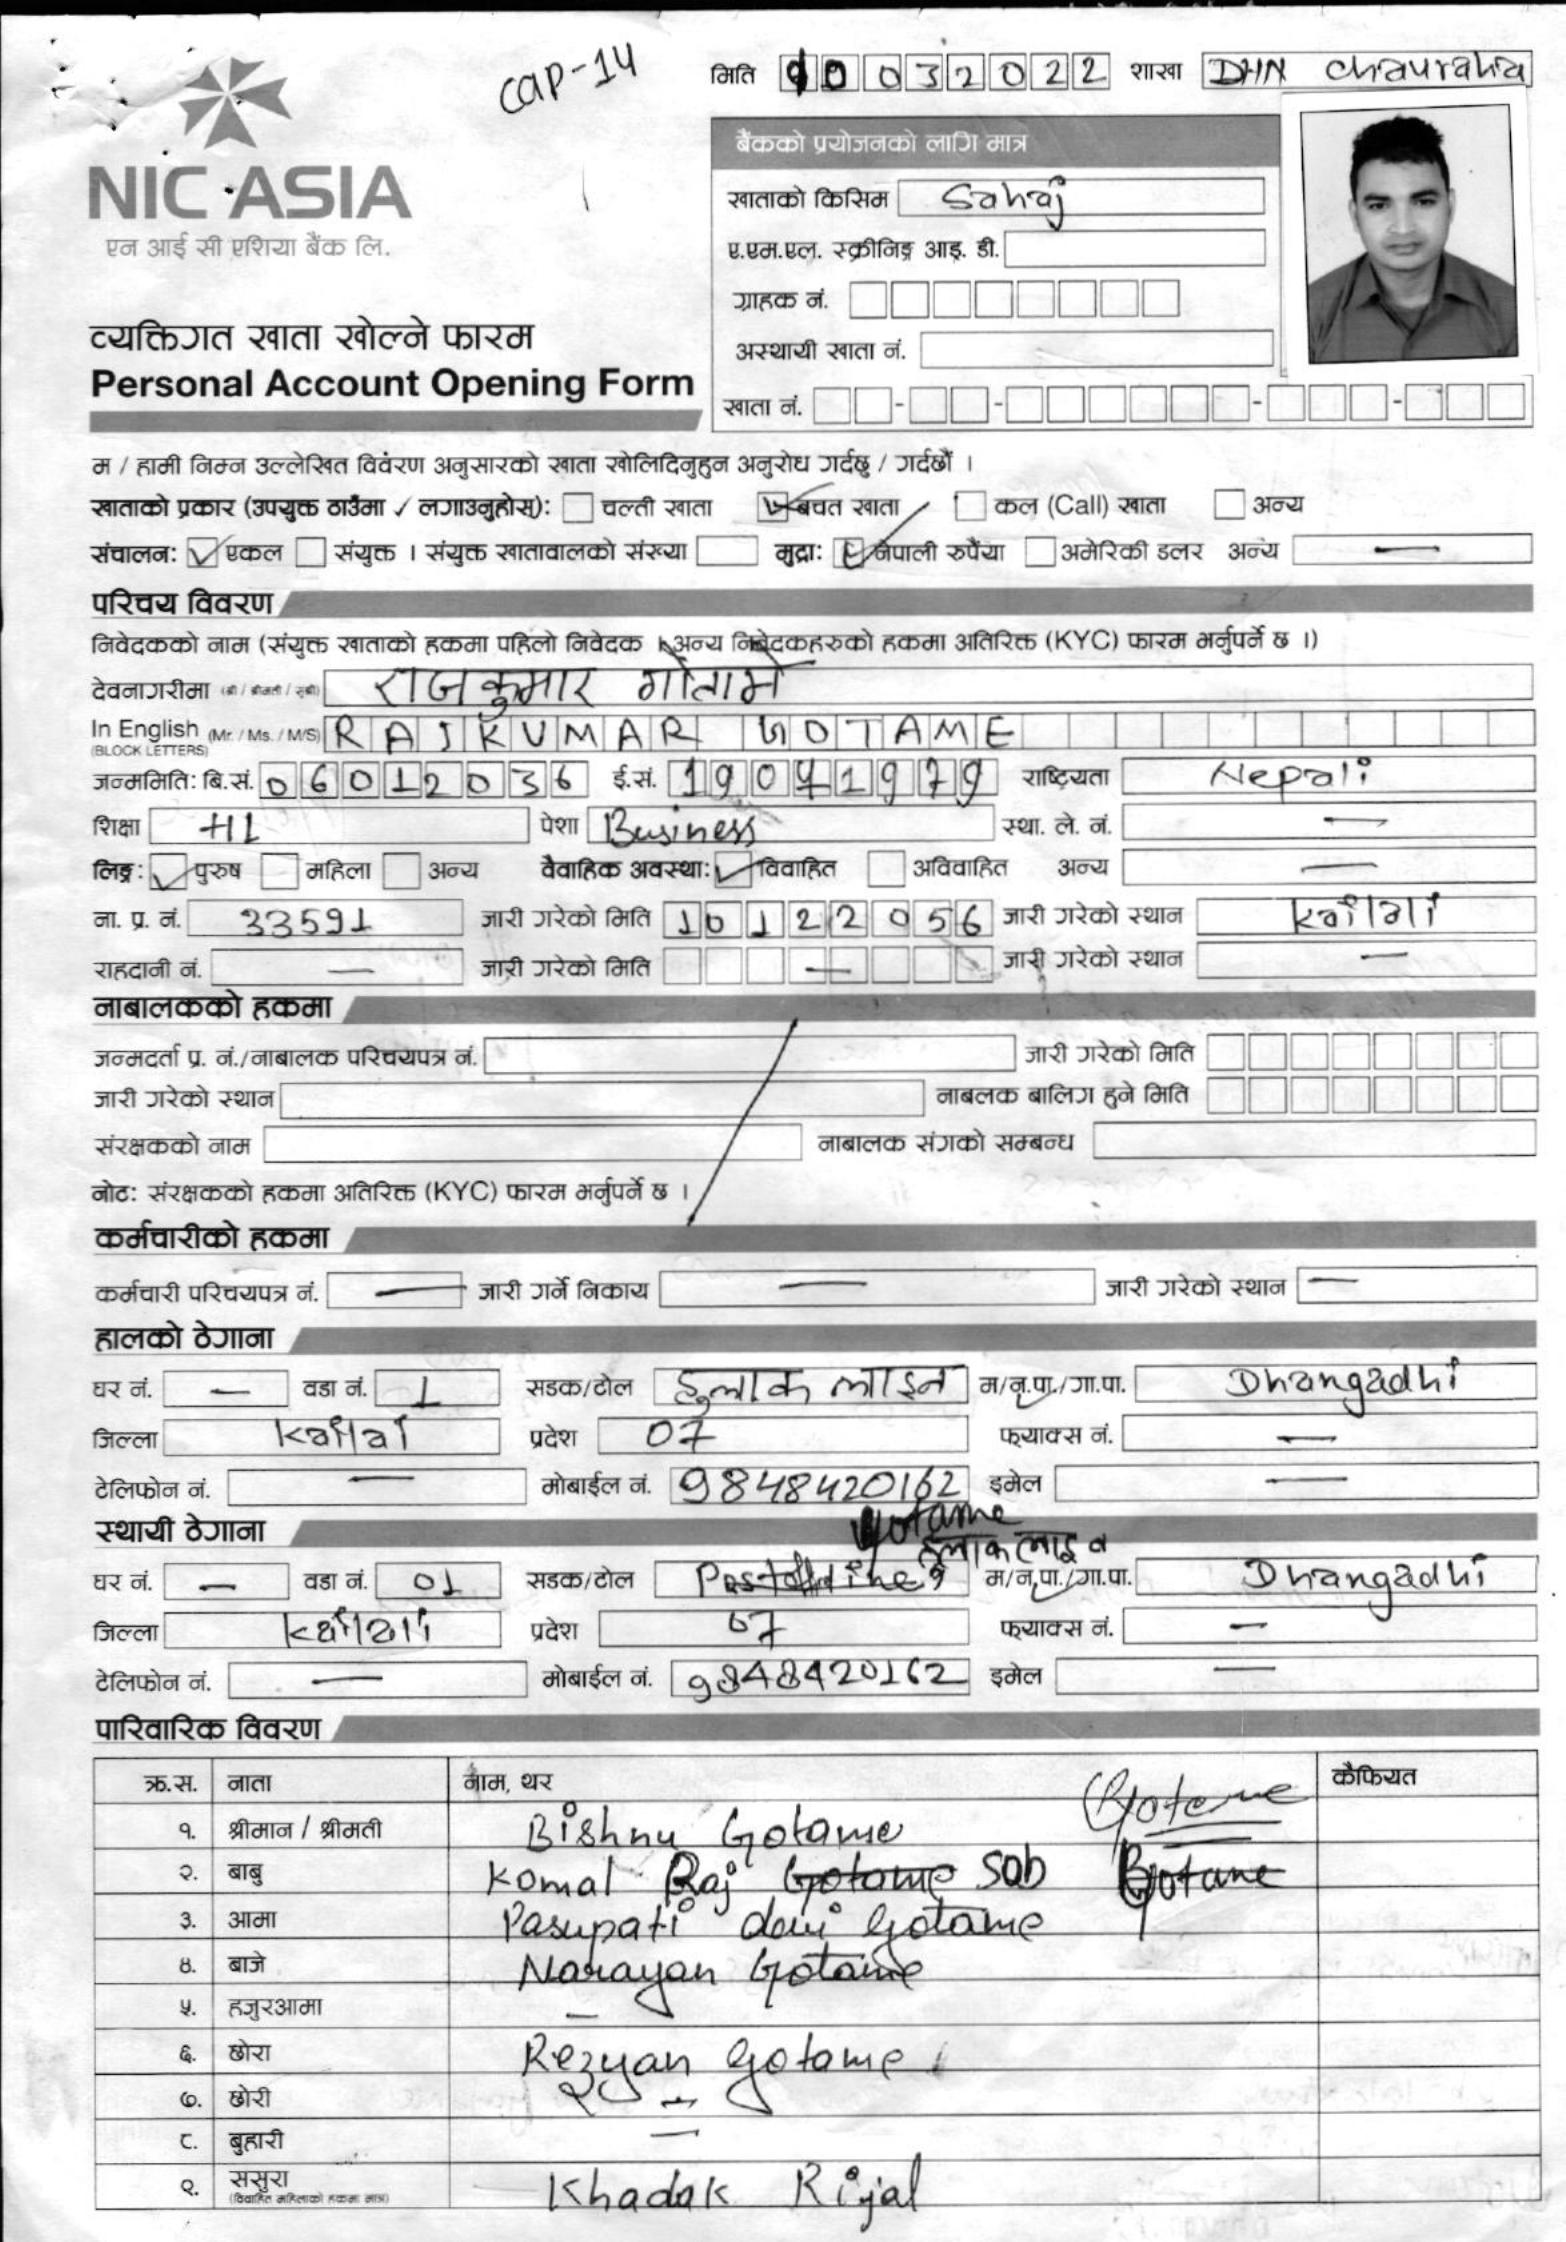 cap-14
मिति 10032022 शाखा DHN chauraha
NIC ASIA
एन आई सी एशिया बैंक लि.
बैंकको प्रयोजनको लागि मात्र
खाताको किसिम Sahaj
ए.एम.एल. स्क्रीनिङ्ग आइ. डी.
ग्राहक नं.
अस्थायी खाता नं.
खाता नं.
व्यक्तिगत खाता खोल्ने फारम
Personal Account Opening Form
म / हामी निम्न उल्लेखित विवरण अनुसारको खाता खोलिदिनुहुन अनुरोध गर्दछु / गर्दछौं ।
खाताको प्रकार (उपयुक्त ठाउँमा ✓ लगाउनुहोस्): चल्ती खाता बचत खाता कल (Call) खाता अन्य
संचालन: एकल संयुक्त । संयुक्त खातावालको संख्या मुद्रा: नेपाली रुपैंया अमेरिकी डलर अन्य —
परिचय विवरण
निवेदकको नाम (संयुक्त खाताको हकमा पहिलो निवेदक । अन्य निवेदकहरुको हकमा अतिरिक्त (KYC) फारम भर्नुपर्ने छ ।)
देवनागरीमा (श्री / श्रीमती / सुश्री) राजकुमार गोतामे
In English (Mr. / Ms. / M/S) RAJKUMAR GOTAME
(BLOCK LETTERS)
जन्ममिति: बि.सं. 06012036 ई.सं. 19041979 राष्ट्रियता Nepali
शिक्षा पेशा Business स्था. ले. नं. —
लिङ्ग: पुरुष महिला अन्य वैवाहिक अवस्था: विवाहित अविवाहित अन्य —
ना. प्र. नं. 33591 जारी गरेको मिति 10122056 जारी गरेको स्थान kailali
राहदानी नं. — जारी गरेको मिति — जारी गरेको स्थान —
नाबालकको हकमा
जन्मदर्ता प्र. नं./नाबालक परिचयपत्र नं. जारी गरेको मिति
जारी गरेको स्थान नाबलक बालिग हुने मिति
संरक्षकको नाम नाबालक संगको सम्बन्ध
नोट: संरक्षकको हकमा अतिरिक्त (KYC) फारम भर्नुपर्ने छ ।
कर्मचारीको हकमा
कर्मचारी परिचयपत्र नं. — जारी गर्ने निकाय — जारी गरेको स्थान —
हालको ठेगाना
घर नं. — वडा नं. 1 सडक/टोल हुलाक लाइन म/न.पा./गा.पा. Dhangadhi
जिल्ला प्रदेश 07 फ्याक्स नं. —
टेलिफोन नं. — मोबाईल नं. 9848420162 इमेल —
स्थायी ठेगाना
Gotame
हुलाक लाइन
घर नं. — वडा नं. 01 सडक/टोल म/न.पा./गा.पा. Dhangadhi
जिल्ला kailali प्रदेश 07 फ्याक्स नं. —
टेलिफोन नं. — मोबाईल नं. 9848420162 इमेल —
पारिवारिक विवरण
क्र.स. नाता नाम, थर कैफियत
Gotame
१. श्रीमान / श्रीमती Bishnu Gotame
२. बाबु Komal Raj Gotame sob Gotame
३. आमा Pasupati devi Gotame
४. बाजे Narayan Gotame
५. हजुरआमा —
६. छोरा Rezyan Gotame
७. छोरी —
८. बुहारी —
९. ससुरा Khadak Rijal
(विवाहित महिलाको हकमा मात्र)